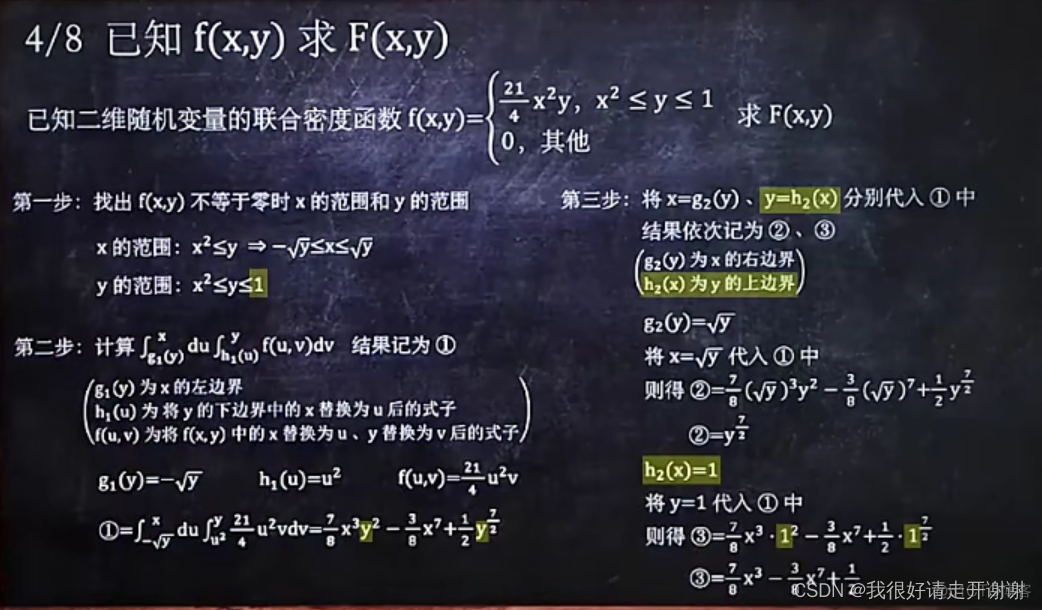 4/8 已知 f(x,y) 求 F(x,y)
已知二维随机变量的联合密度函数 f(x,y)={21/4 x²y, x²≤y≤1 求 F(x,y)
0, 其他
第一步：找出 f(x,y) 不等于零时 x 的范围和 y 的范围
x 的范围：x²≤y ⇒ -√y≤x≤√y
y 的范围：x²≤y≤1
第二步：计算 ∫_{g₁(y)}^{x} du ∫_{h₁(u)}^{y} f(u,v)dv 结果记为 ①
(g₁(y) 为 x 的左边界
h₁(u) 为 将 y 的下边界中的 x 替换为 u 后的式子
f(u,v) 为将 f(x,y) 中的 x 替换为 u 、y 替换为 v 后的式子)
g₁(y)=-√y h₁(u)=u² f(u,v)=21/4 u²v
①=∫_{-√y}^{x} du ∫_{u²}^{y} 21/4 u²vdv=7/8 x³y² - 3/8 x⁷+1/2 y^{7/2}
第三步：将 x=g₂(y) 、y=h₂(x) 分别代入 ① 中
结果依次记为 ② 、③
(g₂(y) 为 x 的右边界
h₂(x) 为 y 的上边界)
g₂(y)=√y
将 x=√y 代入 ① 中
则得 ②=7/8 (√y)³y² - 3/8 (√y)⁷+1/2 y^{7/2}
②=y^{7/2}
h₂(x)=1
将 y=1 代入 ① 中
则得 ③=7/8 x³ · 1² - 3/8 x⁷+1/2 · 1^{7/2}
③=7/8 x³ - 3/8 x⁷+1/2
CSDN @我很好请走开谢谢